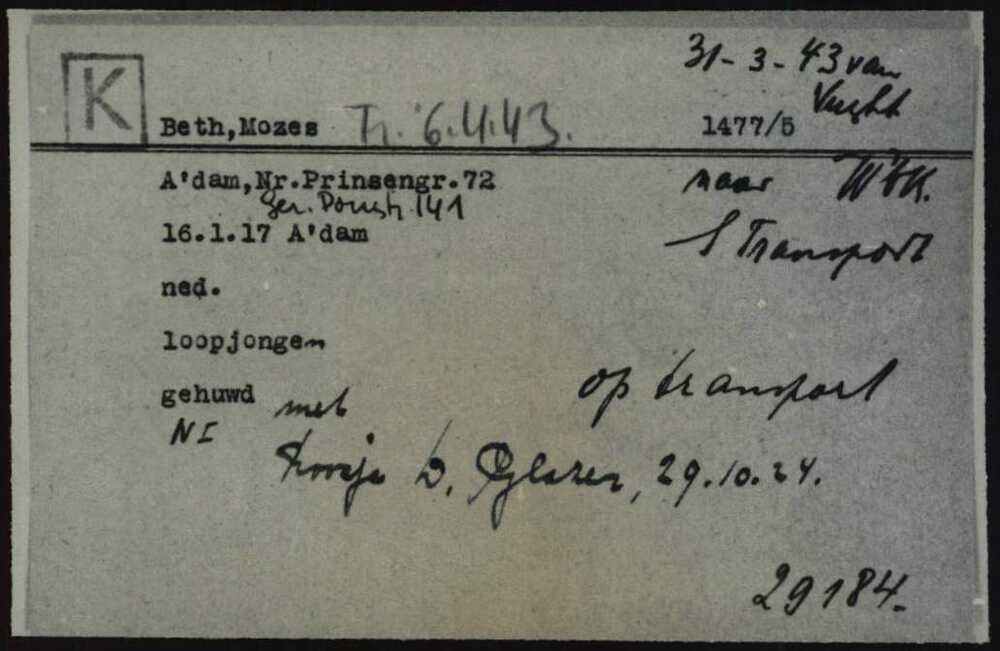 K
31-3-43 van
Vught
Beth,Mozes Tr. 6.4.43. 1477/5
A'dam,Nr.Prinsengr.72
naar WBK.
Ger. 141
16.1.17 A'dam
S Transport
ned.
loopjongen
gehuwd met
op transport
NI
D. Glazer, 29.10.24.
29184.